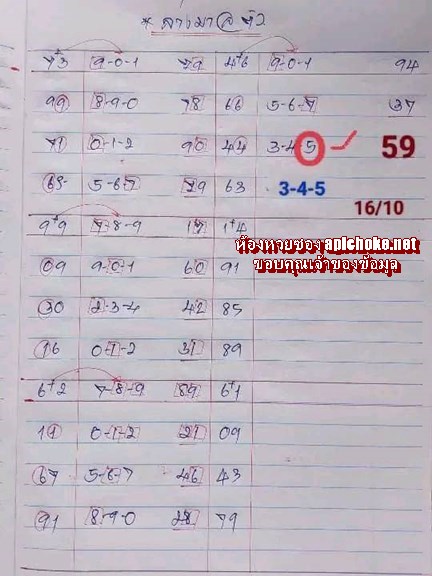 * ล่างมา @ ตัว
7+3 9-0-1 79 4+6 9-0-1 94
99 8-9-0 78 66 5-6-7 37
71 0-1-2 90 44 3-4-5 59
65 5-6-7 79 63 3-4-5
16/10
9+9 7-8-9 17 1+4
ห้องหวยซอง apichoke.net
09 9-0-1 60 91
ขอบคุณเจ้าของข้อมูล
30 2-3-4 42 85
16 0-1-2 31 89
6+2 7-8-9 89 6+1
11 0-1-2 21 09
67 5-6-7 46 43
91 8-9-0 28 79